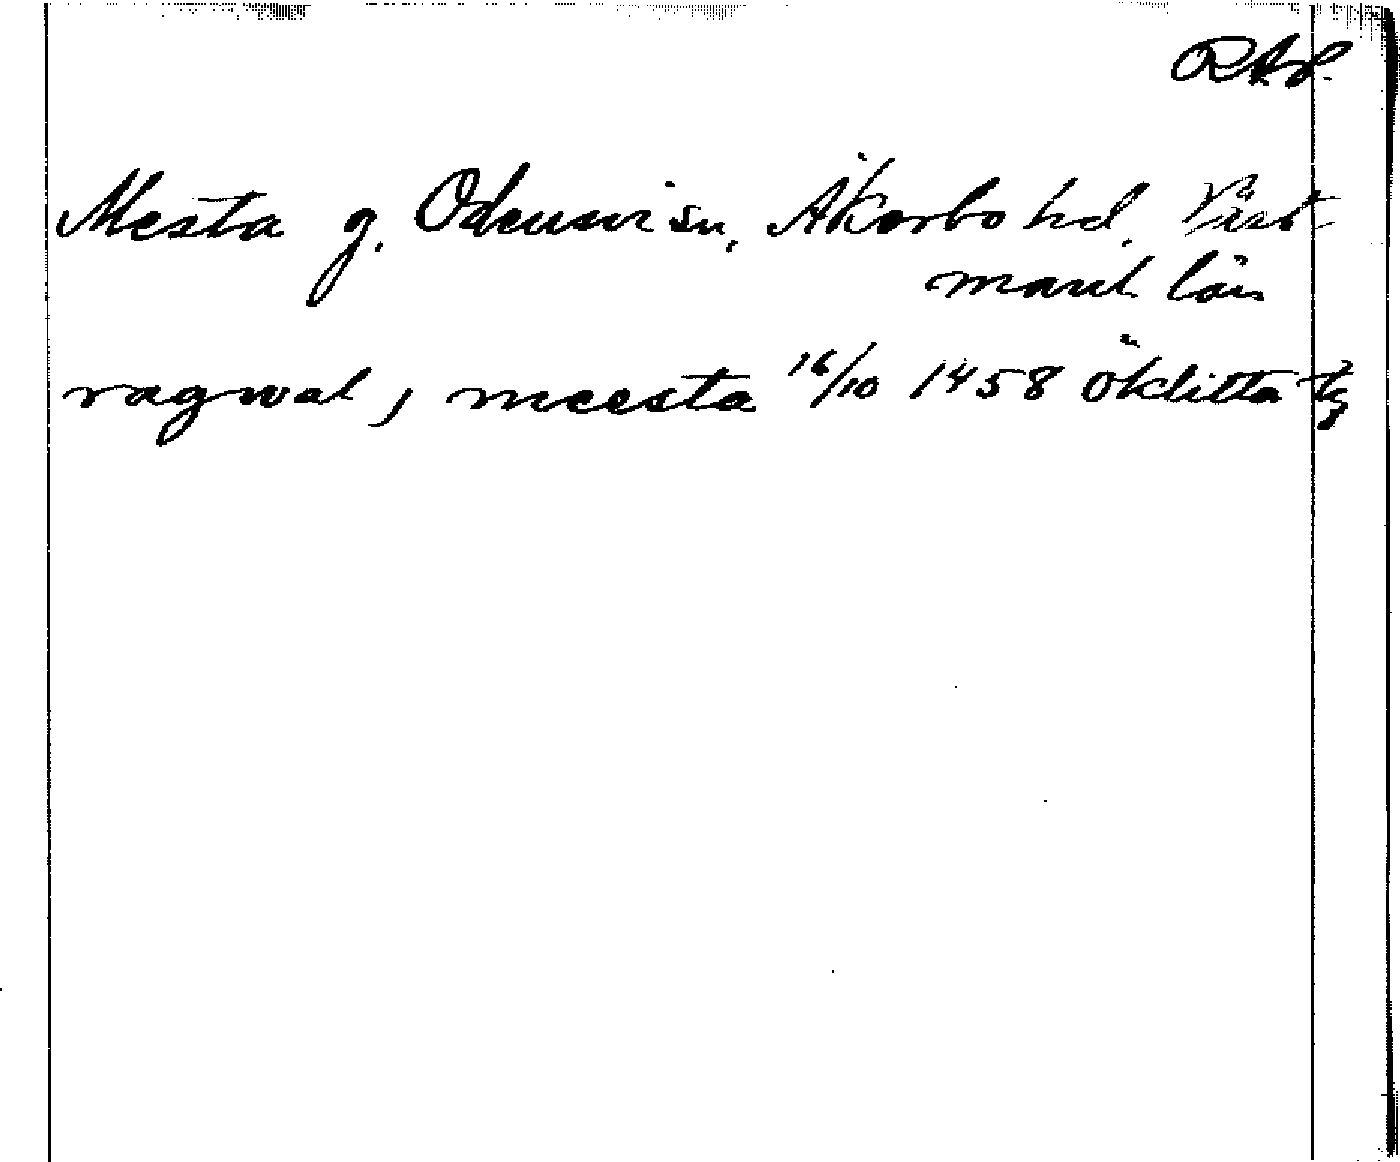 RAP.
Mesta g. Odensvi sn, Åkerbo hd. Väst-
manl. län
ragwal j meesta 16/10 1458 Öklitta tg